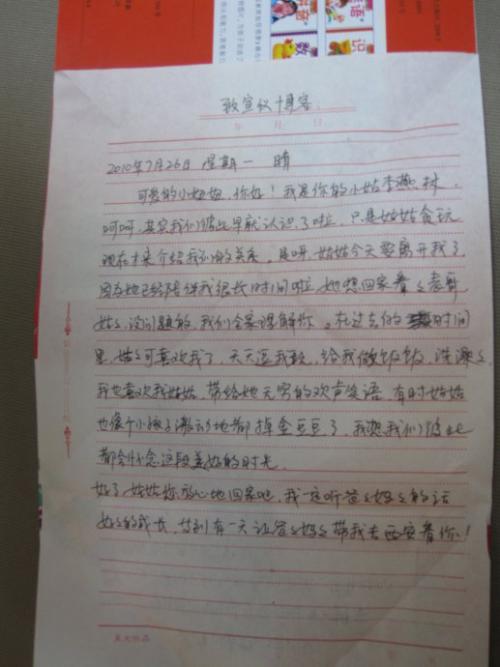 英语
识
数
敖宣仪博客
年 月 日
2010年7月26日 星期一 晴
可爱的小妞妞,你好!我是你的小姑李燕林。
呵呵,其实我们彼此早就认识了啦,只是姑姑贪玩
现在才来介绍我们的关系。是呀,姑姑今天要离开我了
因为她已经陪伴我很长时间啦。她想回家看看
姑姑,没问题的,我们会理解你。在过去的时间
里,姑姑可喜欢我了,天天逗我玩,给我做饭饭,洗澡澡
我也喜欢我姑姑,带给她无穷的欢声笑语,有时姑姑
也像个小孩子激动地都掉金豆豆了,我想我们彼此
都会怀念这段美好的时光。
好了姑姑您放心地回家吧,我一定听爸爸妈妈的话
好好的成长,等到有一天让爸爸妈妈带我去西安看你!